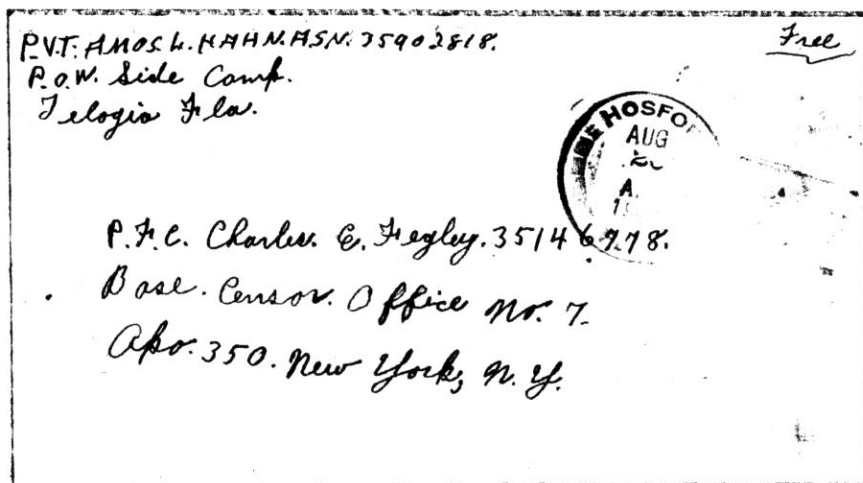 P.V.T. AMOS. L. HAHN. ASN. 35902818.
Free
P.O.W. Side Camp.
Telogia Fla.
HOSFO
AUG
A.
P.F.C. Charles. E. Fegley. 35146778.
Base. Censor. Office No. 7.
Apo. 350. New York, N.Y.